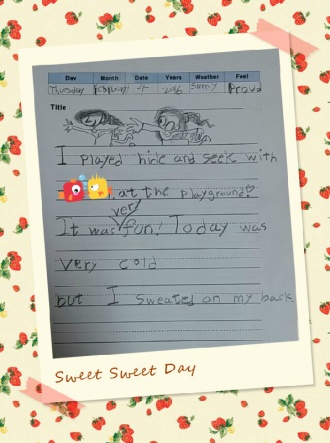 Day Month Date Years Weather Feel
Thursday February 4 2016 Sunny Proud
Title
I played hide and seek with
, at the playground!
very
It was fun! Today was
very cold
but I sweated on my back
Sweet Sweet Day